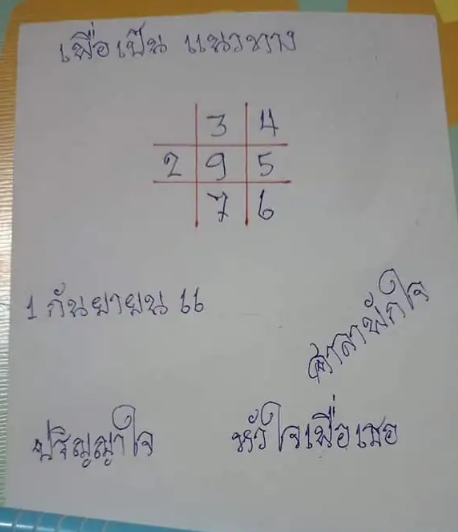 เพื่อเป็น แนวทาง
3 4
2 9 5
7 6
1 กันยายน 66
ศาลาพักใจ
ปริญญาใจ หัวใจเพื่อเธอ